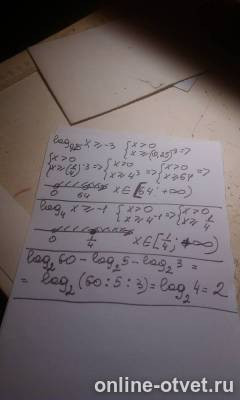 log₀,₂₅ x ≥ -3 { x > 0 x ≥ (0,25)⁻³ =>
{ x > 0 x ≥ (1/4)⁻³ => { x > 0 x ≥ 4³ => { x > 0 x ≥ 64 =>
0 64 x ∈ [64; +∞)
log₄ x ≥ -1 { x > 0 x ≥ 4⁻¹ => { x > 0 x ≥ 1/4
0 1/4 x ∈ [1/4; +∞)
log₂ 60 - log₂ 5 - log₂ 3 =
= log₂ (60 : 5 : 3) = log₂ 4 = 2
online-otvet.ru